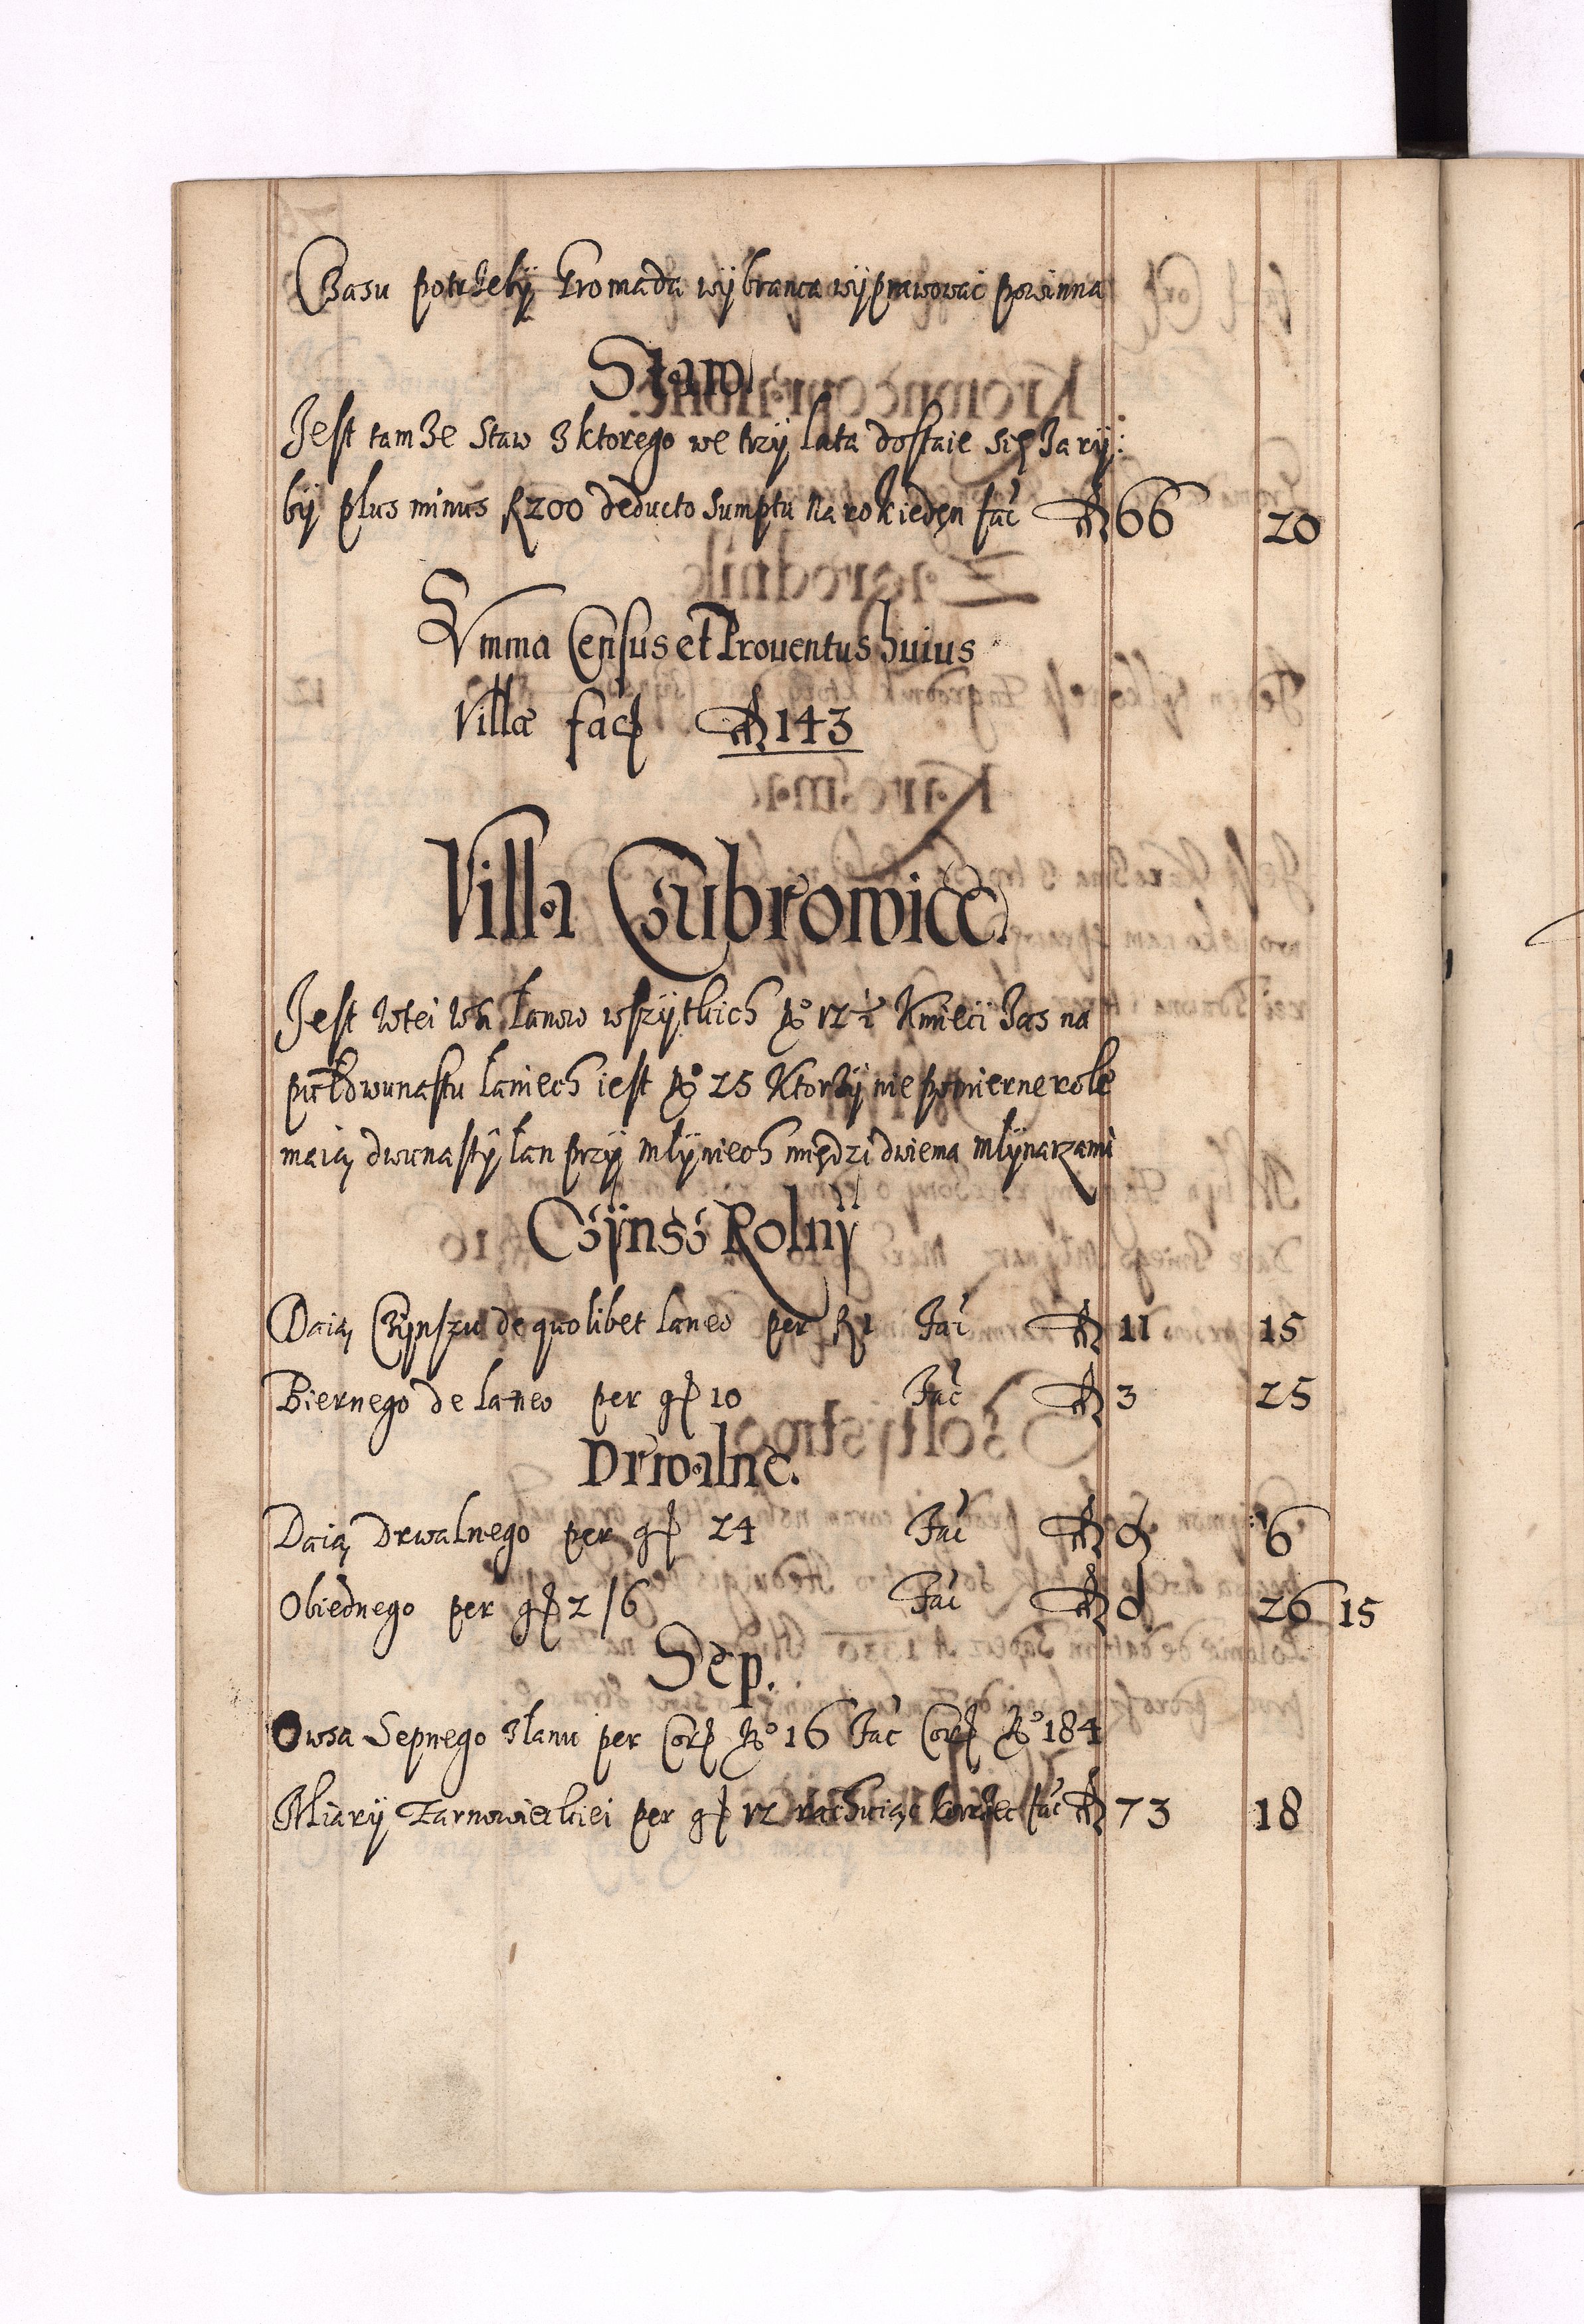 Czasu potrzeby Gromada wybranca wyprawowac powinna
Staw
Jest tamze Staw z ktorego we trzy lata dostaie się za ry:
by plus minus fl 200 deducto sumptu na rok ieden fac fl 66 20
Summa Census et Prouentus huius
Villæ fac fl 143
Villa Czubrowice.
Jest wtei wsi Łanow wszytkich No 12 ½ Kmieci zas na
pułdwunastu łaniech iest No 25 Ktorzy nie pomierne role
maią dwunasty łan przy młyniech między dwiema młynarzami
Czynsz Rolny
Daią Czynszu de quolibet laneo per fl 1 Fac fl 11 15
Biernego de laneo per g 10 Fac fl 3 25
Drwalne.
Daią Drwalnego per g 24 Fac fl 9 6
Obiednego per g 2/6 Fac fl d 26 15
Sep.
Owsa Sepnego z łanu per Cor No 16 Fac Cor No 184
Miary Tarnowieckiei per g 12 rachuiąc korzec fac fl 73 18